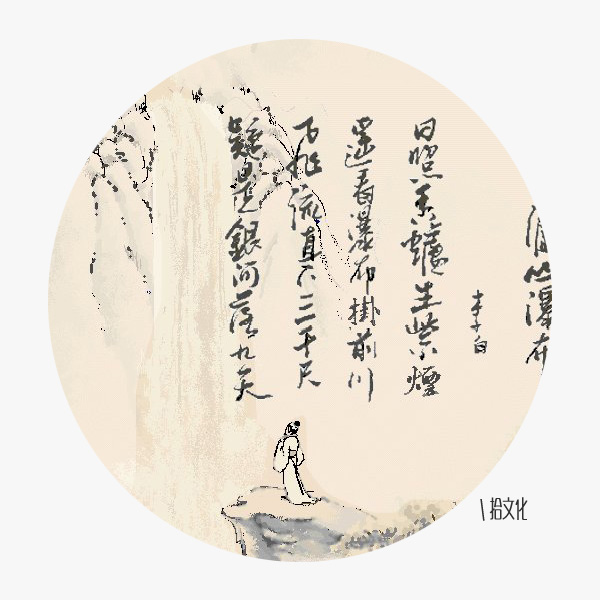 山瀑布
李白
日照香爐生紫煙
遙看瀑布掛前川
飛流直下三千尺
疑是銀河落九天
\拾文化